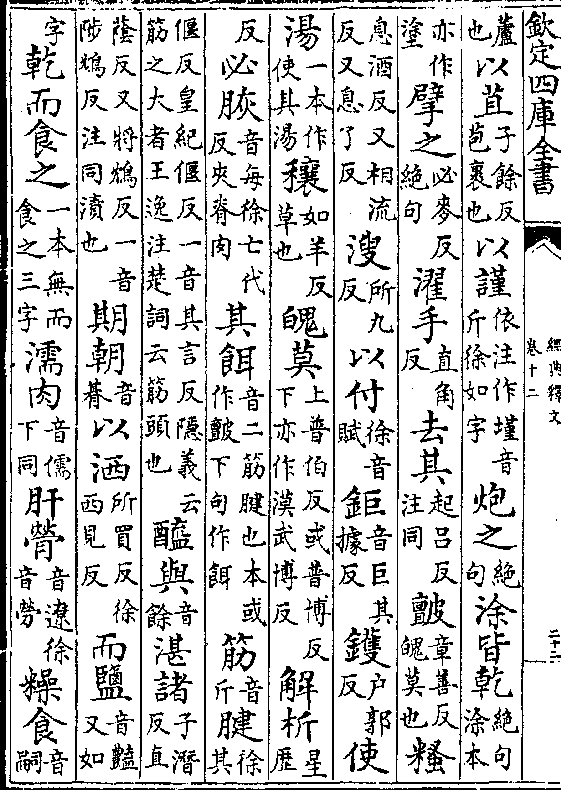 欽定四庫全書
經典釋文
卷十二
二十二
蘆也以苴子餘反苞裹也以謹依注作墐音斤徐如字炮之絶句涂皆乾絶句涂本
亦作塗擘之必麥反絶句濯手直角反去其起吕反注同皽章善反魄莫也糔
息酒反又相流反又息了反溲所九反以付徐音賦鉅音巨其據反鑊户郭反使
湯一本作使其湯穰如羊反草也魄莫上普伯反或普博反下亦作漠武博反解析星歷
反必脄音每徐亡代反夾脊肉其餌音二筋腱也本或作皽下句作餌筋音斤腱徐其
偃反皇紀偃反一音其言反隱義云筋之大者王逸注楚詞云筋頭也醢與音餘湛諸子潛反直
蔭反又將鴆反一音陟鴆反注同漬也期朝音朞以洒所買反徐西見反而鹽音豔又如
字乾而食之一本無而食之三字濡肉音儒下同肝膋音遼徐音勞糝食音嗣